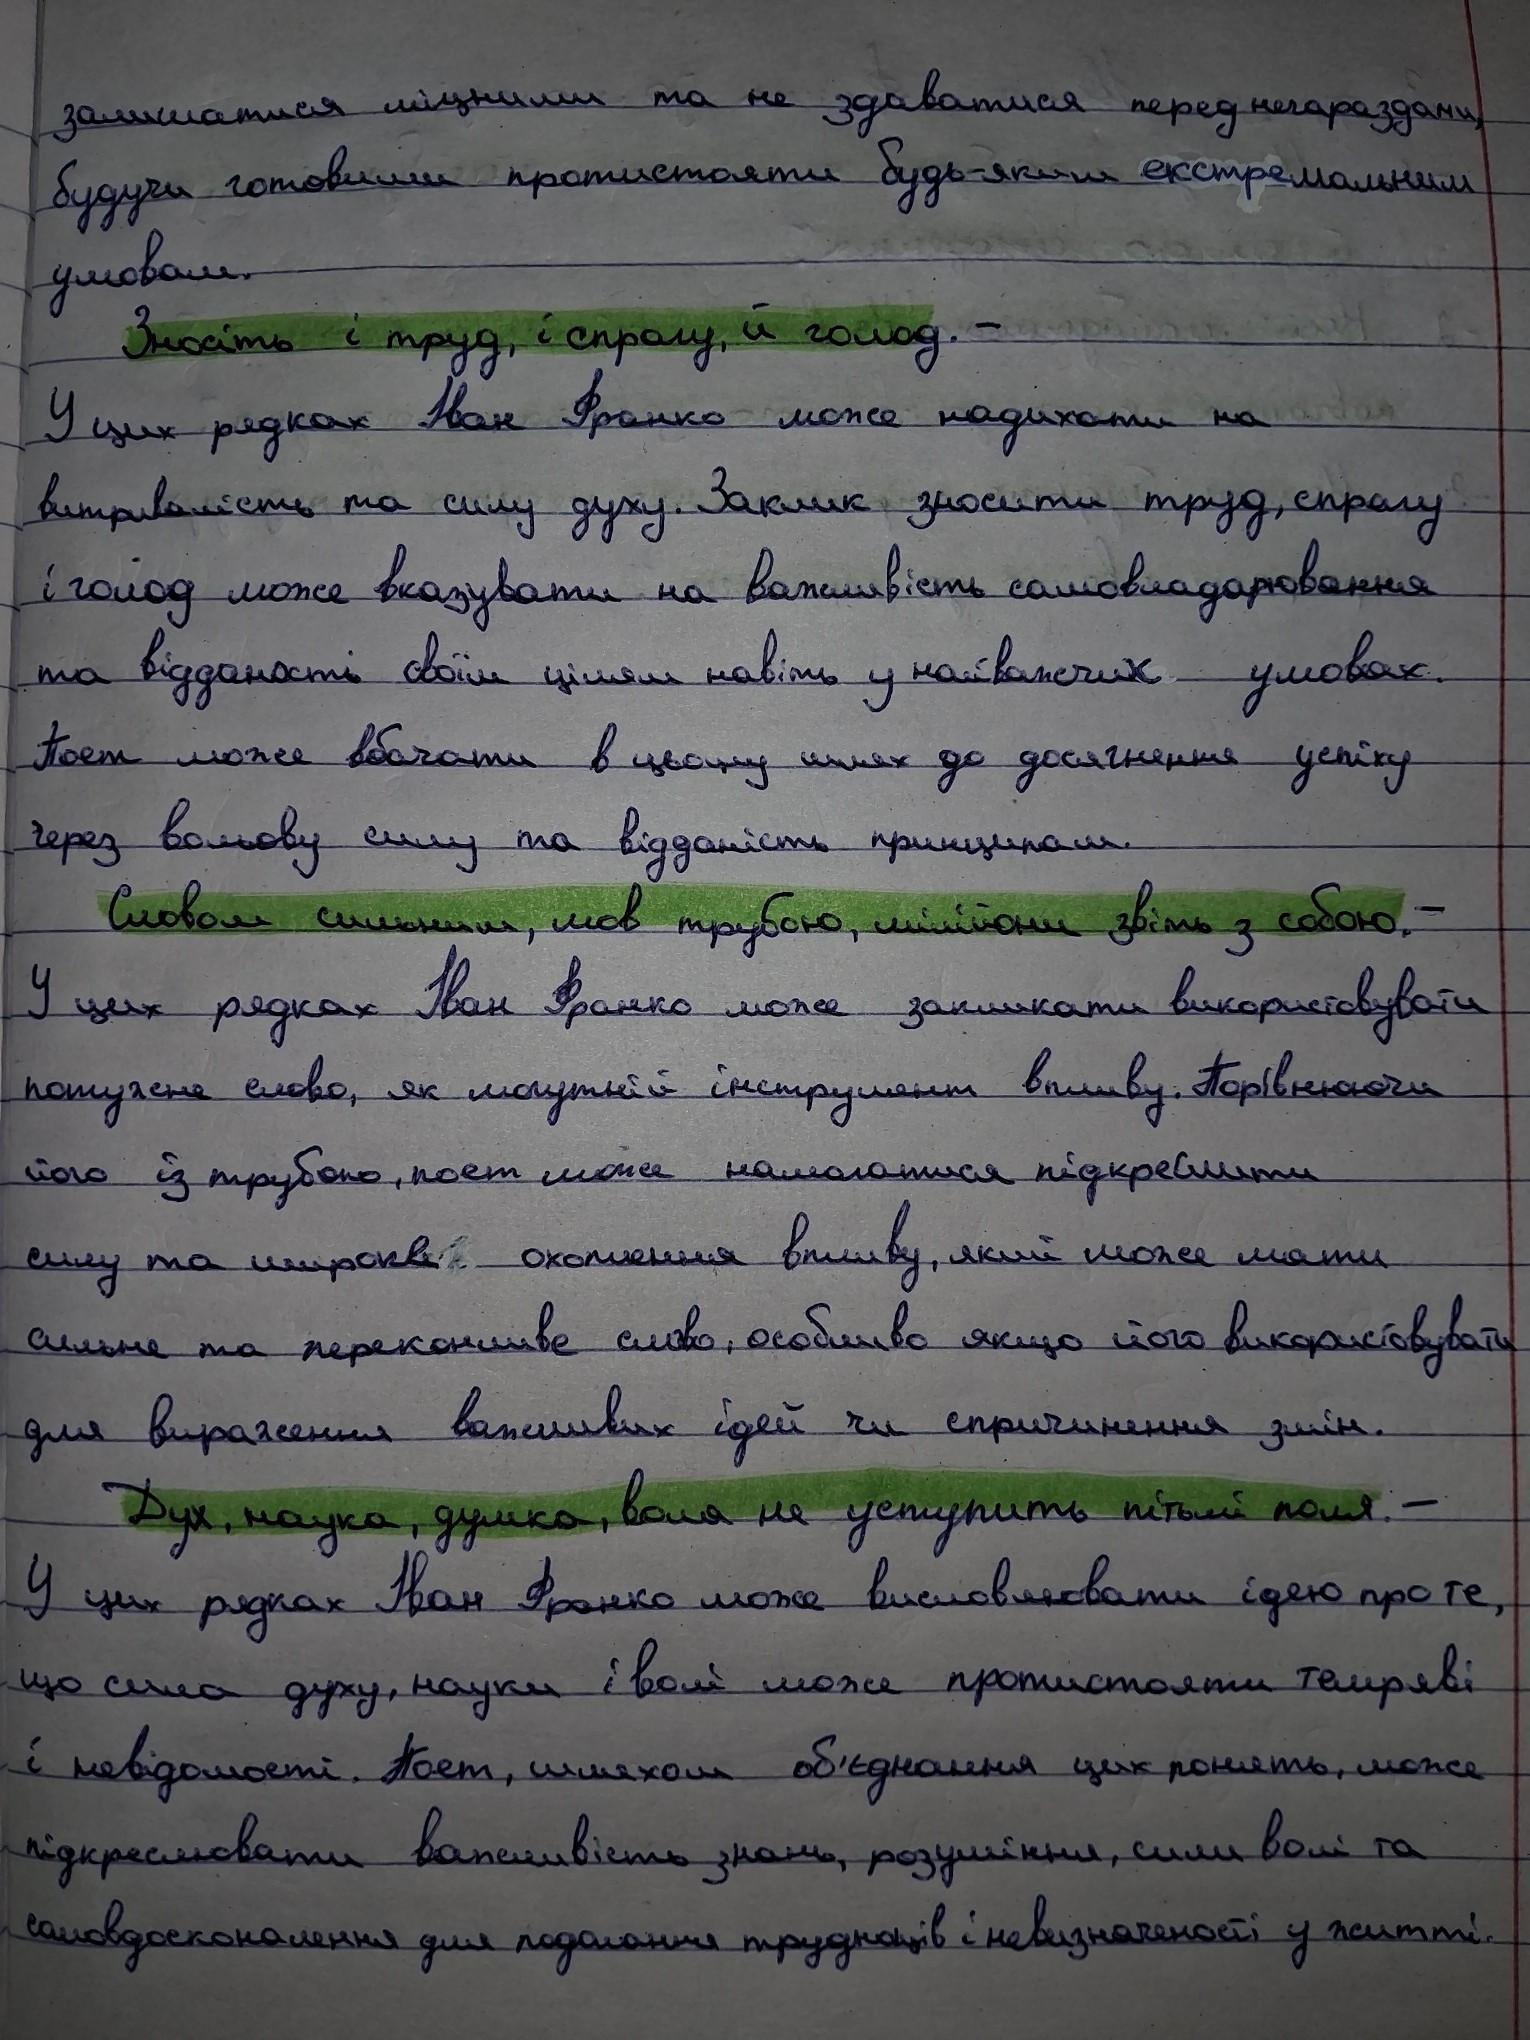 залишатися міцними та не здаватися перед негараздами,
будучи готовими протистояти будь-яким екстремальним
умовам.
Зносіть і труд, і спрагу, й голод. —
У цих рядках Іван Франко може надихати на
витривалість та силу духу. Заклик зносити труд, спрагу
і голод може вказувати на важливість самовладарювання
та відданості своїм цілям навіть у найважчих умовах.
Поет може вбачати в цьому шлях до досягнення успіху
через вольову силу та відданість принципам.
Словом сильним, мов трубою, мілійони звіть з собою. —
У цих рядках Іван Франко може закликати використовувати
потужне слово, як могутній інструмент впливу. Порівнюючи
його із трубою, поет може намагатися підкреслити
силу та широке охоплення впливу, який може мати
сильне та переконливе слово, особливо якщо його використовувати
для вираження важливих ідей чи спричинення змін.
Дух, наука, думка, воля не уступить пітьмі поля. —
У цих рядках Іван Франко може висловлювати ідею про те,
що сила духу, науки і волі може протистояти темряві
і невідомості. Поет, шляхом об'єднання цих понять, може
підкреслювати важливість знань, розуміння, сили волі та
самовдосконалення для подолання труднощів і невизначеності у житті.